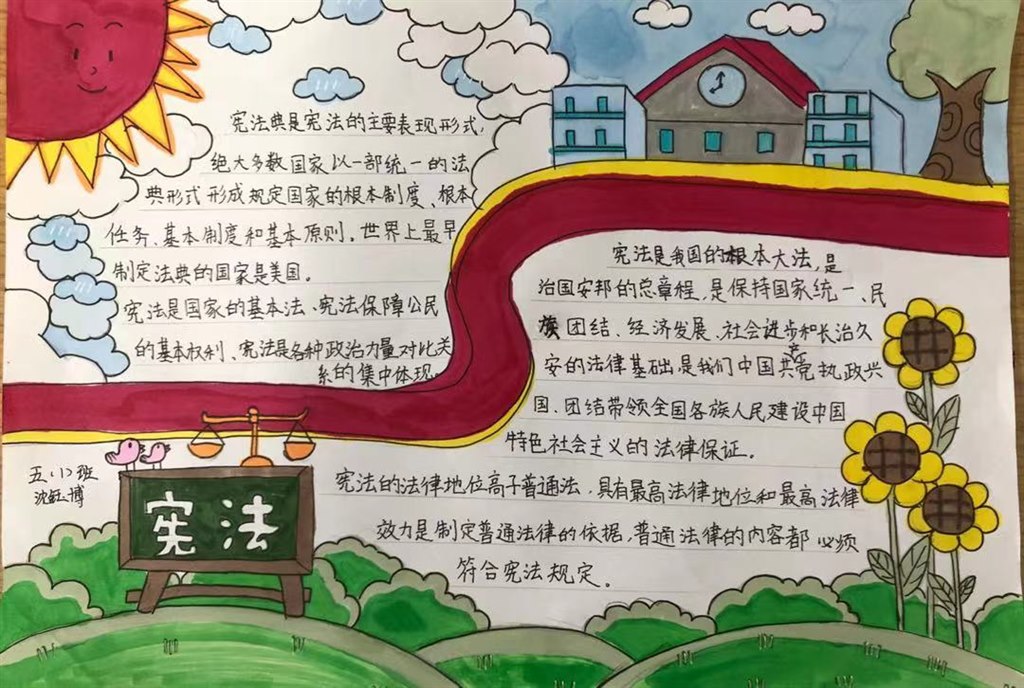 宪法典是宪法的主要表现形式,
绝大多数国家以一部统一的法
典形式形成规定国家的根本制度、根本
任务、基本制度和基本原则。世界上最早
制定法典的国家是美国。
宪法是国家的基本法、宪法保障公民
的基本权利、宪法是各种政治力量对比关
系的集中体现。
宪法是我国的根本大法,是
治国安邦的总章程,是保持国家统一、民
族团结、经济发展、社会进步和长治久
安的法律基础是我们中国共产党执政兴
国、团结带领全国各族人民建设中国
特色社会主义的法律保证。
宪法的法律地位高于普通法,具有最高法律地位和最高法律
效力是制定普通法律的依据,普通法律的内容都必须
符合宪法规定。
五(1)班
沈钰博
宪法